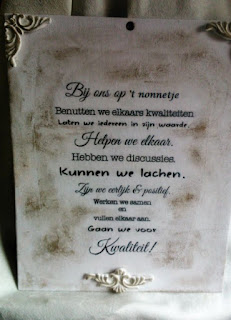 Bij ons op 't nonnetje
Benutten we elkaars kwaliteiten
Laten we iedereen in zijn waarde.
Helpen we elkaar.
Hebben we discussies.
Kunnen we lachen.
Zijn we eerlijk & positief.
Werken we samen
en
vullen elkaar aan.
Gaan we voor
Kwaliteit!